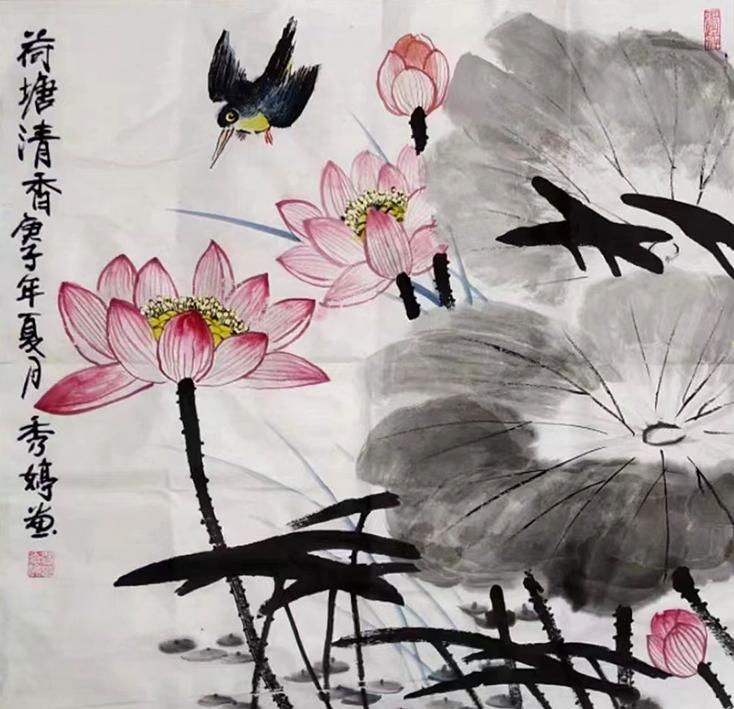 荷塘清香庚子年夏月秀婷画